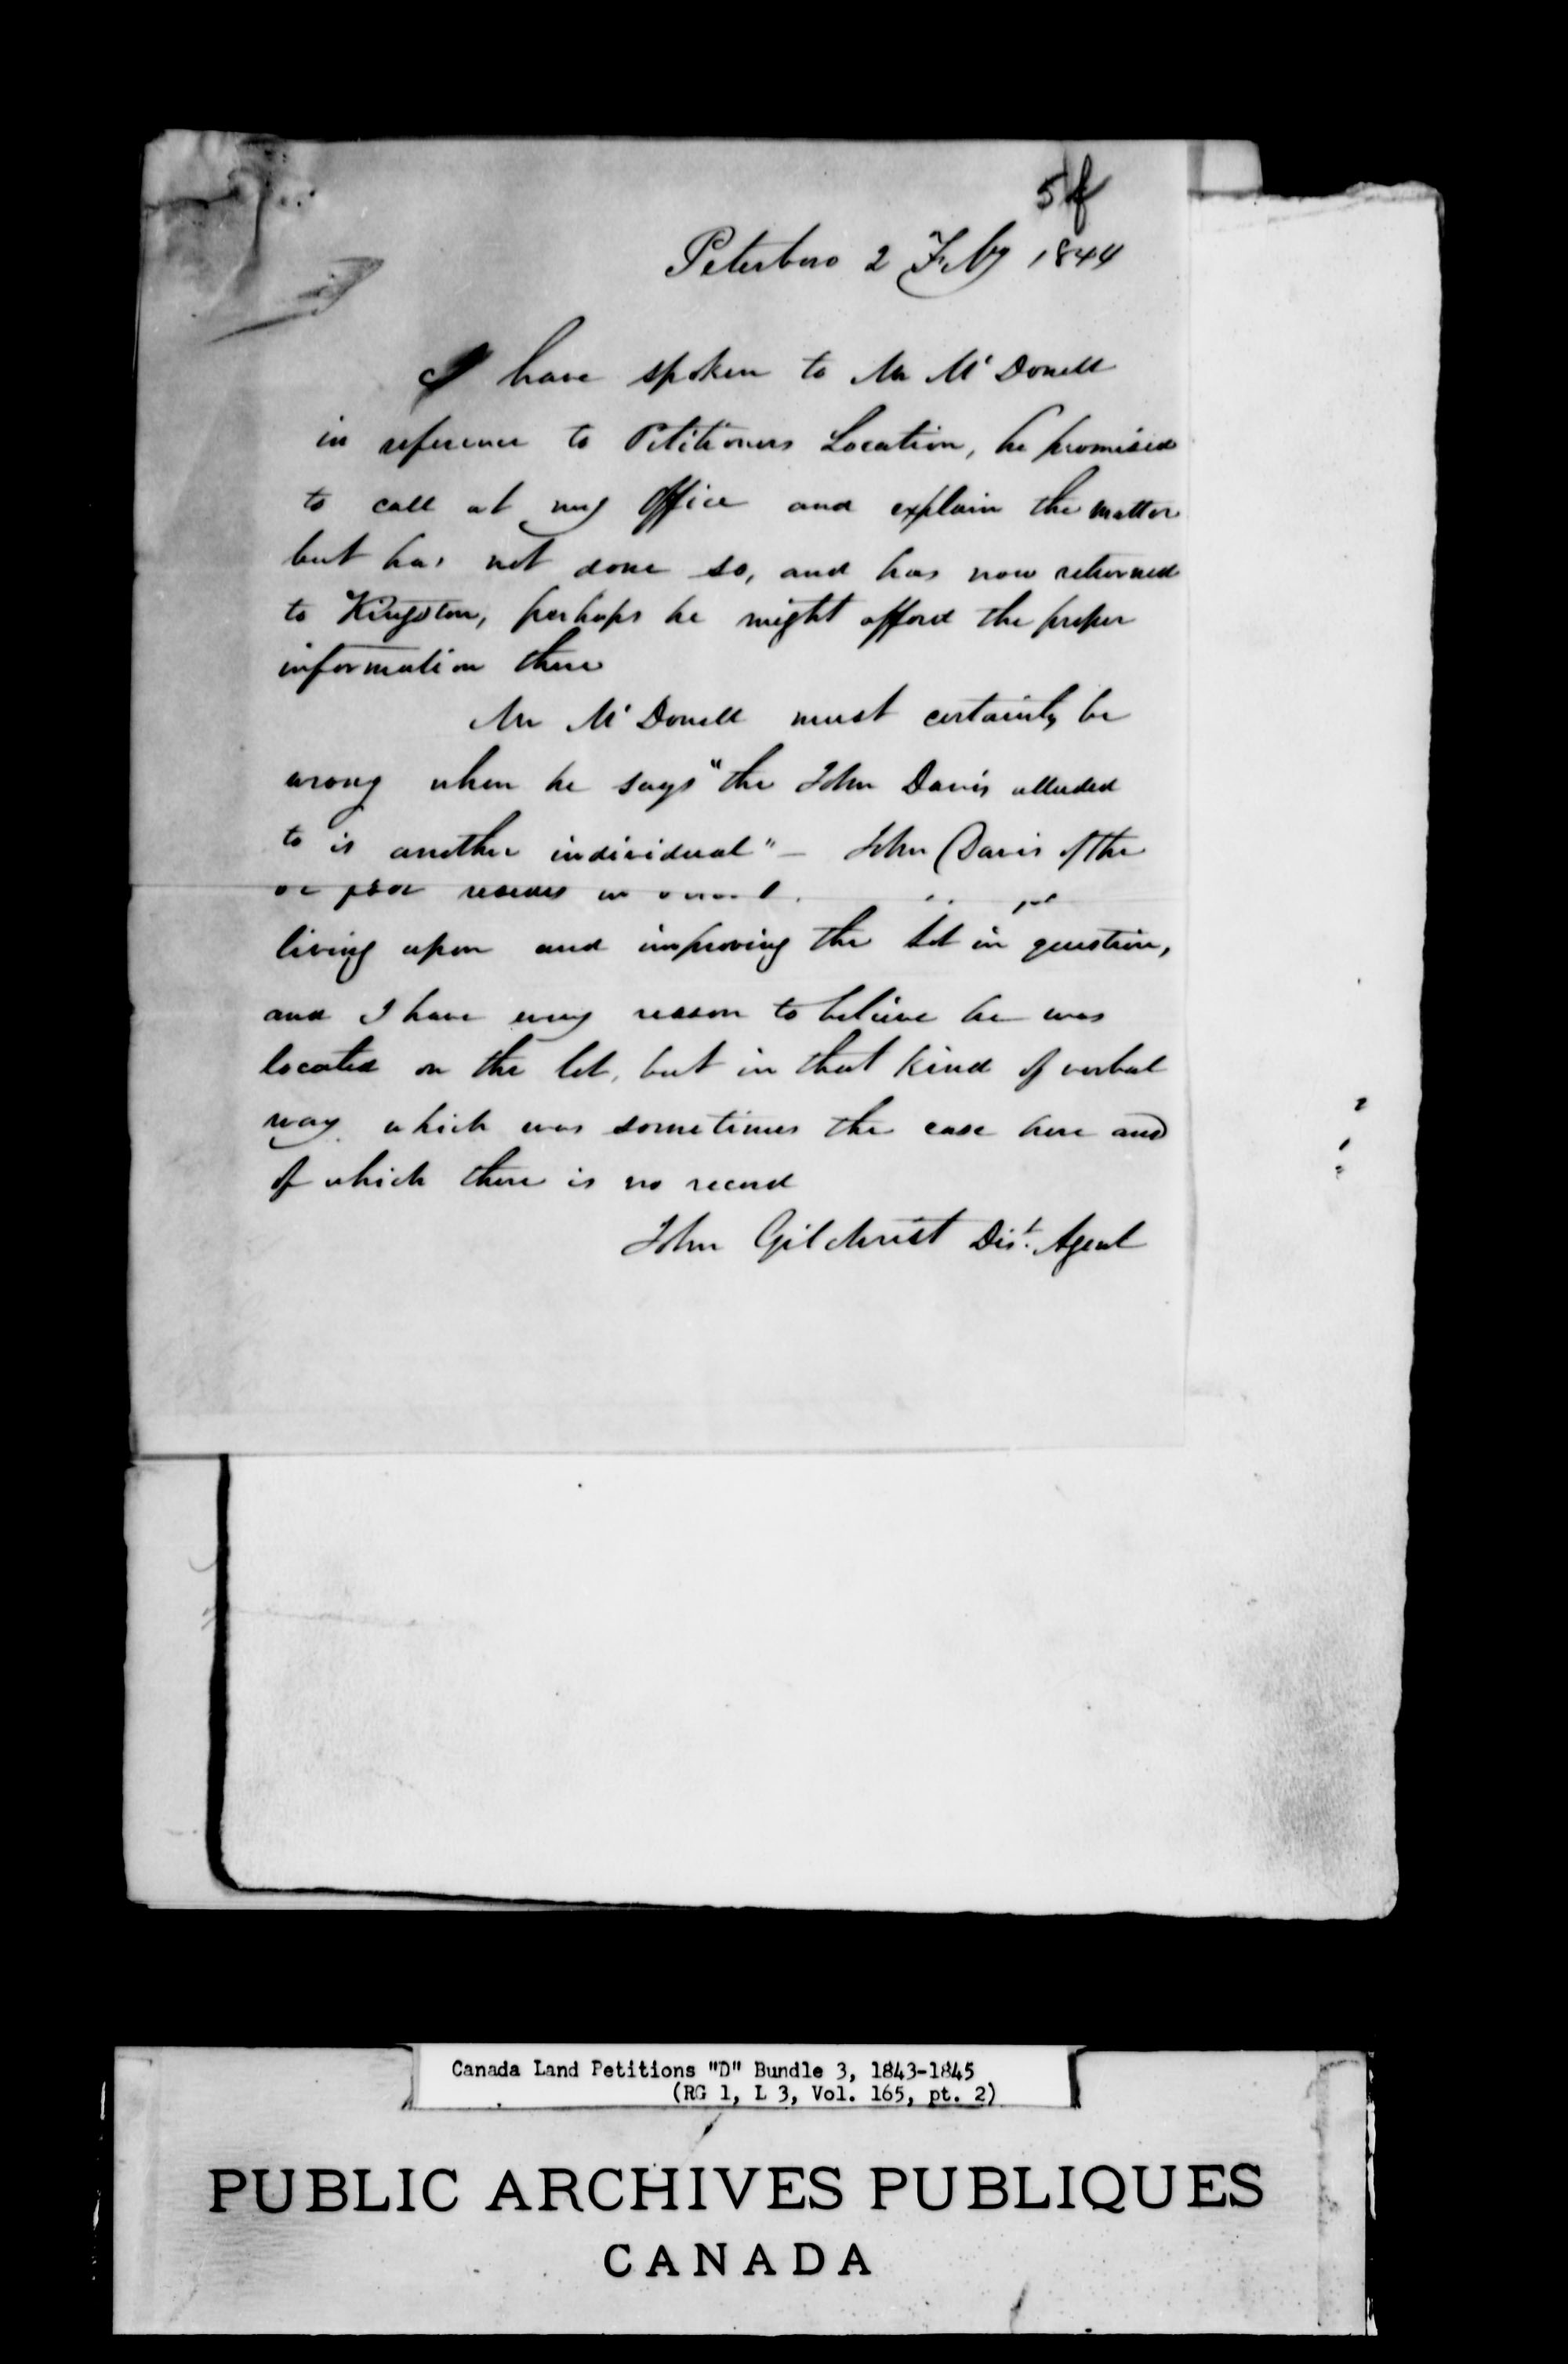 5f
Peterboro 2 Feby 1844
I have spoken to Mr McDonell
in reference to Petitioners Location, he promised
to call at my Office and explain the matter
but has not done so, and has now returned
to Kingston, perhaps he might afford the proper
information there
Mr McDonell must certainly be
wrong when he says "the John Davis alluded
to is another individual" — John Davis of the
resides in
living upon and improving the lot in question,
and I have every reason to believe he was
located on the lot, but in that kind of verbal
way which was sometimes the case here and
of which there is no record
John Gilchrist Dist. Agent
Canada Land Petitions "D" Bundle 3, 1843-1845
(RG 1, L 3, Vol. 165, pt. 2)
PUBLIC ARCHIVES PUBLIQUES
CANADA